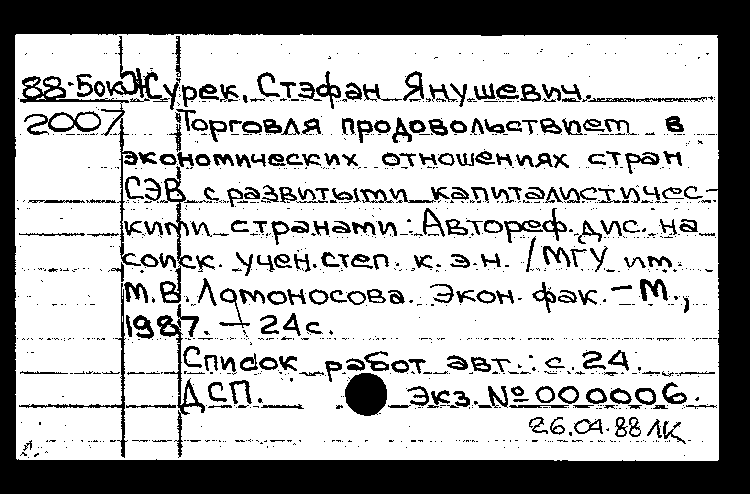 88-5окЖурек, Стэфан Янушевич.
2007 Торговля продовольствием в
экономических отношениях стран
СЭВ с развитыми капиталистичес-
кими странами: Автореф. дис. на
соиск. учен. степ. к. э. н. /МГУ им.
М. В. Ломоносова. Экон. фак. - М.,
1987. - 24 с.
Список работ авт.: с. 24.
ДСП. Экз. № 000006.
26.04.88 ЛК